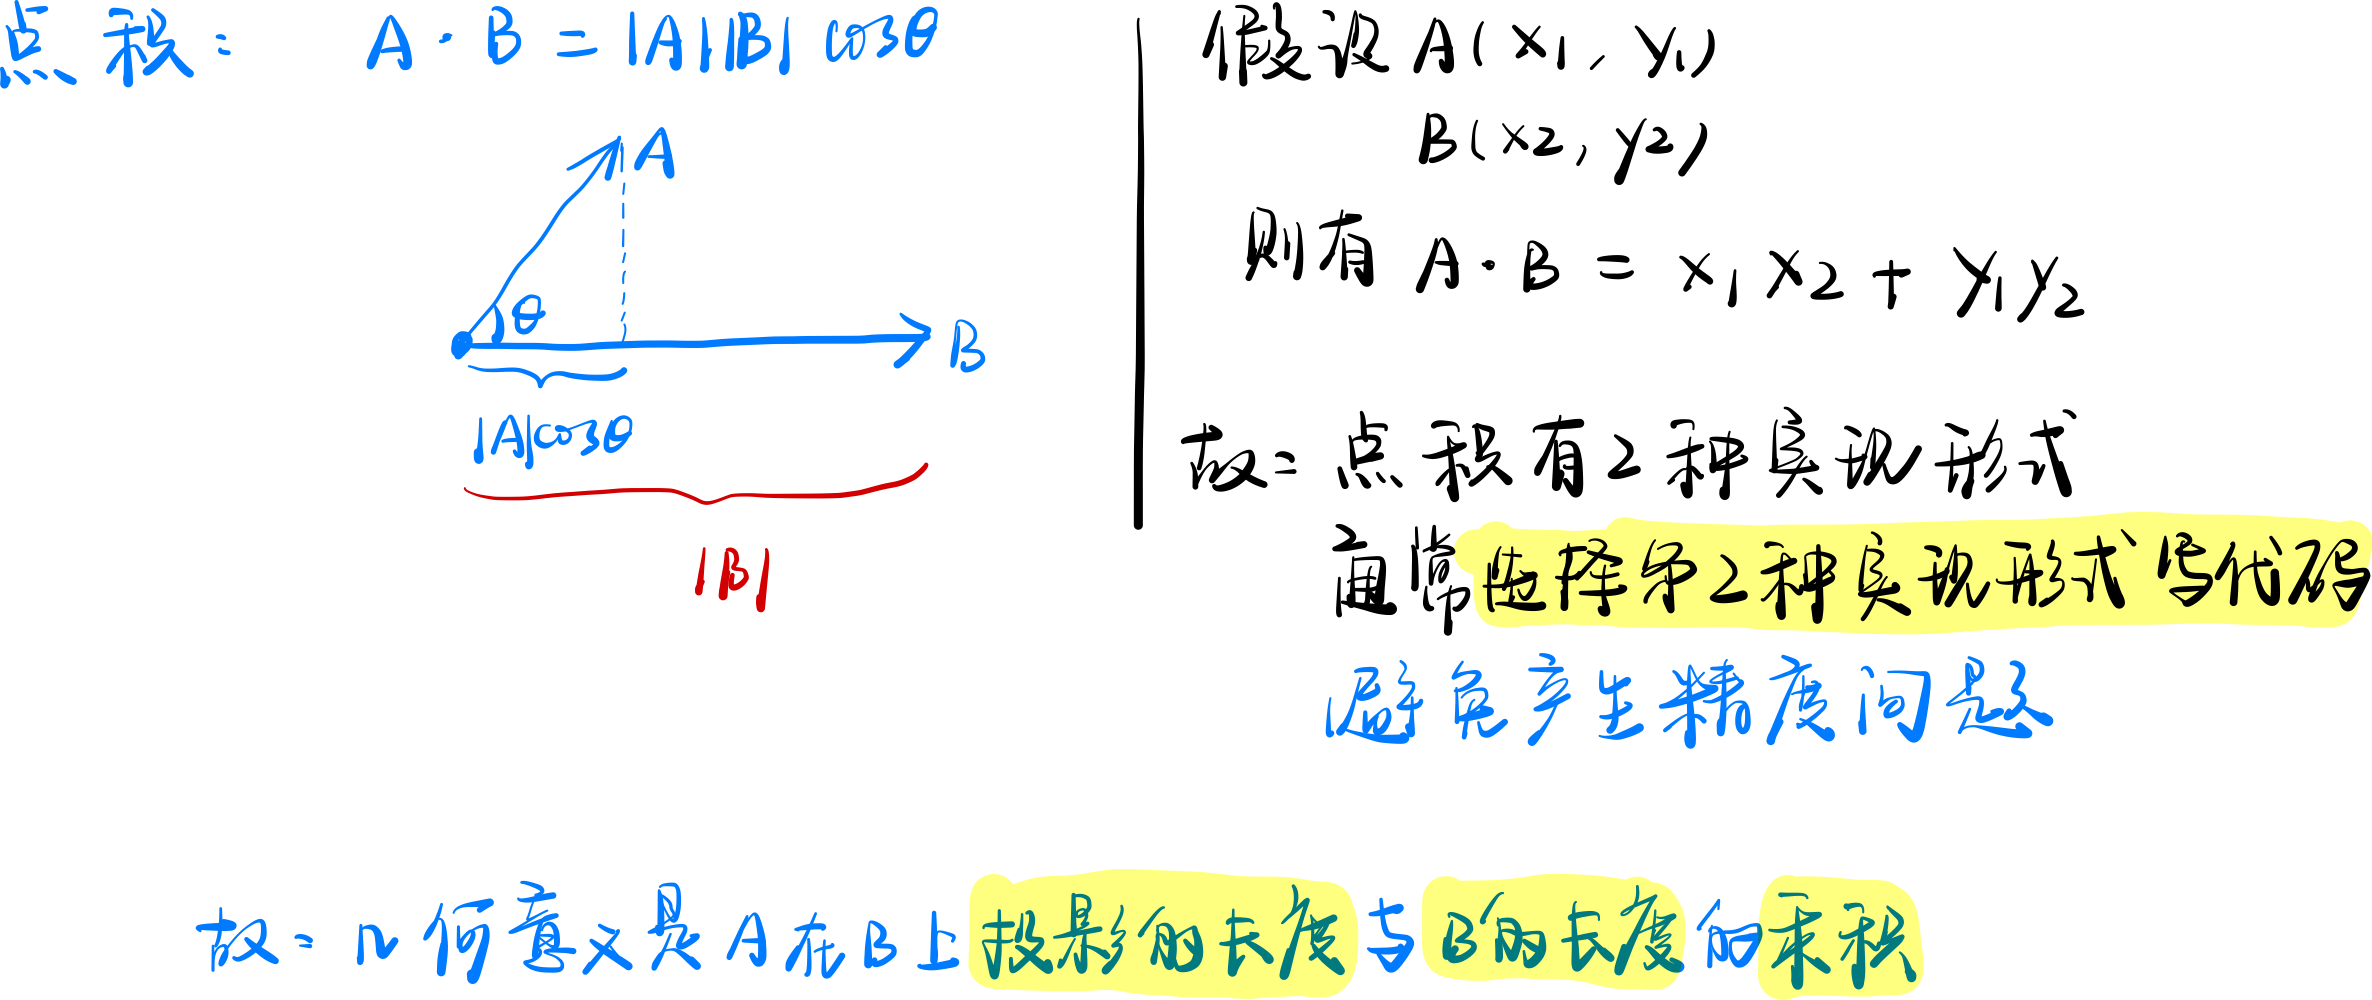 点积： A · B = |A||B| cosθ
A
θ
B
|A|cosθ
|B|
假设 A(x1, y1)
B(x2, y2)
则有 A · B = x1x2 + y1y2
故：点积有2种实现形式
通常选择第2种实现形式写代码
避免产生精度问题
故：几何意义是A在B上投影的长度与B的长度的乘积